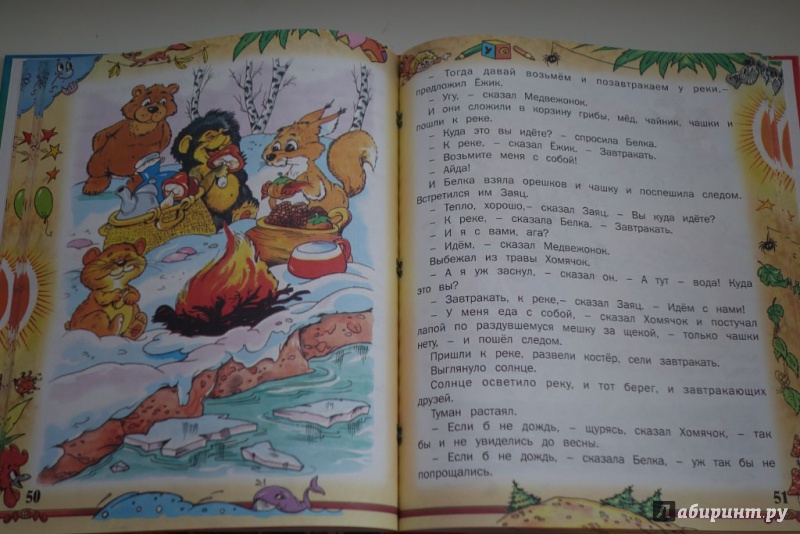 – Тогда давай возьмём и позавтракаем у реки,–
предложил Ёжик.
– Угу, – сказал Медвежонок.
И они сложили в корзину грибы, мёд, чайник, чашки и
пошли к реке.
– Куда это вы идёте? – спросила Белка.
– К реке, – сказал Ёжик. – Завтракать.
– Возьмите меня с собой!
– Айда!
И Белка взяла орешков и чашку и поспешила следом.
Встретился им Заяц.
– Тепло, хорошо,– сказал Заяц. – Вы куда идёте?
– К реке, – сказала Белка. – Завтракать.
– И я с вами, ага?
– Идём, – сказал Медвежонок.
Выбежал из травы Хомячок.
– А я уж заснул, – сказал он. – А тут – вода! Куда
это вы?
– Завтракать, к реке,– сказал Заяц. – Идём с нами!
– У меня еда с собой, – сказал Хомячок и постучал
лапой по раздувшемуся мешку за щекой, – только чашки
нету, – и пошёл следом.
Пришли к реке, развели костёр, сели завтракать.
Выглянуло солнце.
Солнце осветило реку, и тот берег, и завтракающих
друзей.
Туман растаял.
– Если б не дождь, – щурясь, сказал Хомячок, – так
бы и не увиделись до весны.
– Если б не дождь, – сказала Белка, – уж так бы не
попрощались.
50
51
Лабиринт.ру